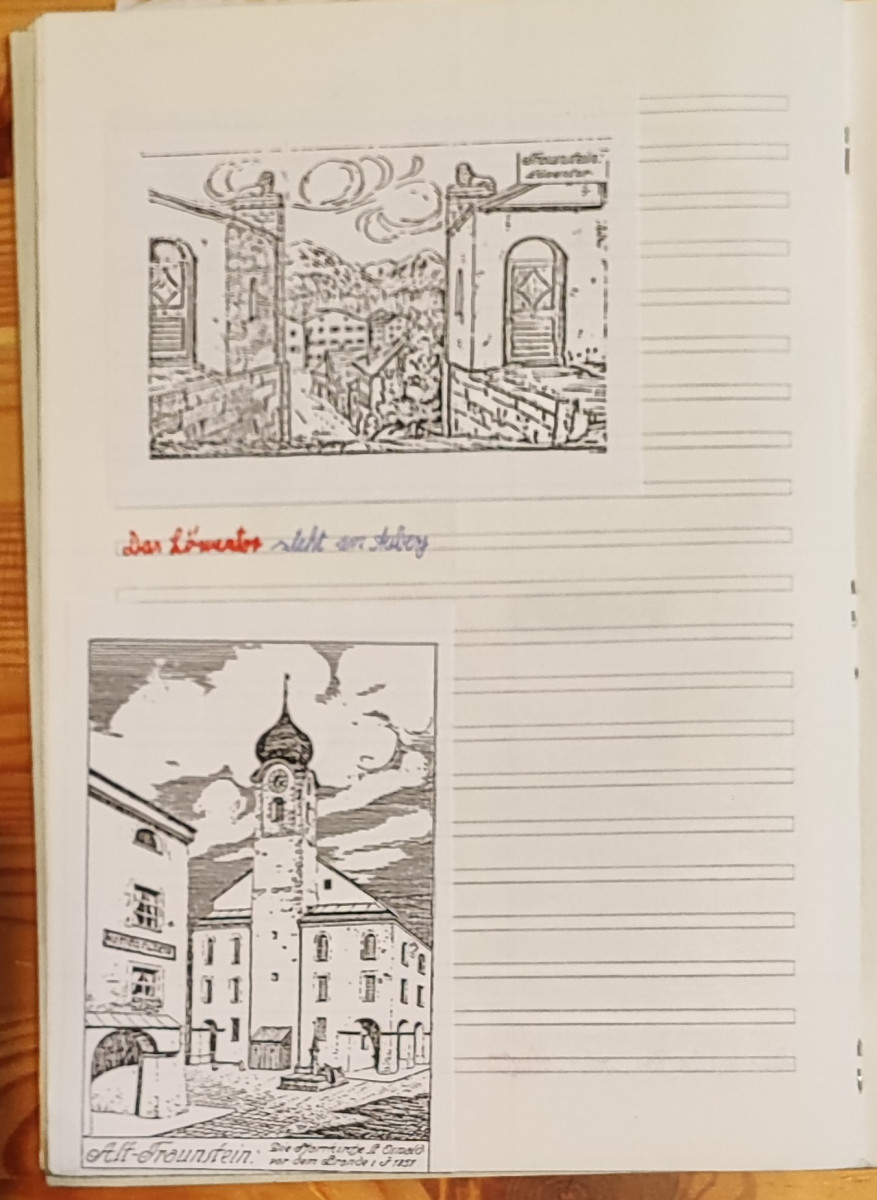 Traunstein:
Löwentor
Das Löwentor steht am Auberg
Alt-Traunstein: Die Pfarrkirche St Oswald
vor dem Brande i J 1851